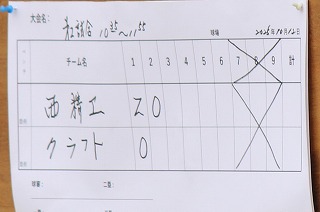 大会名： 第1試合 10:25〜11:55 球場 2025年10月12日
チーム名 1 2 3 4 5 6 7 8 9 計
西精工 2 0
クラフト 0
球審： 二塁：